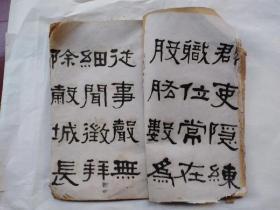 郡吏隱練
職位常在
股肱數為
從事聲無
細聞徵拜
除穀城長